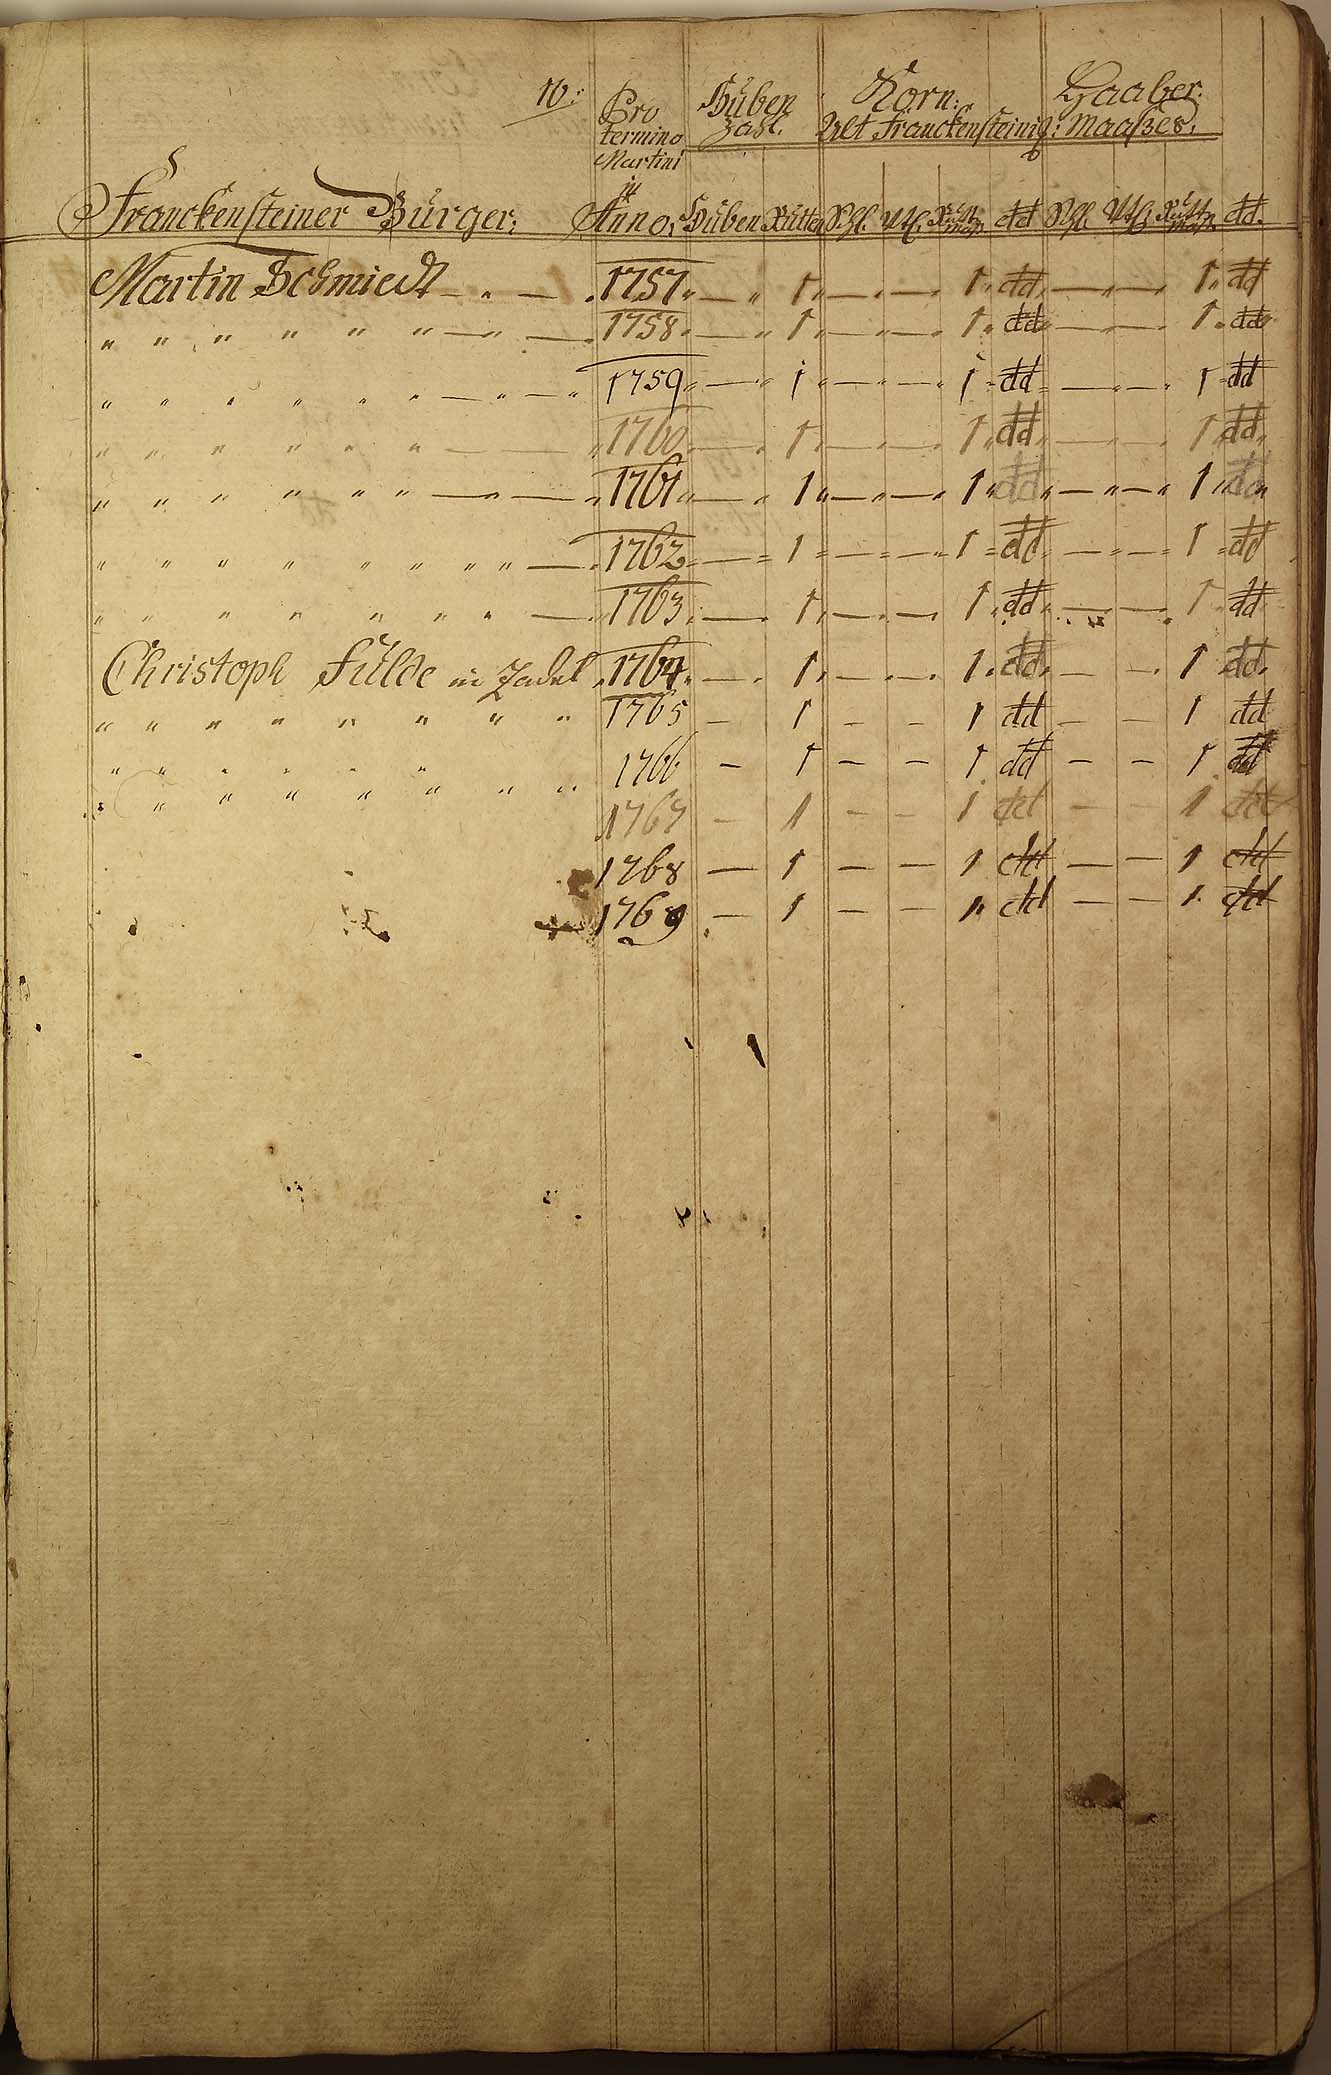 16:
Pro termino Martini in Anno,
Huben Zahl.
Korn: Haaber:
Alt Franckensteinig: Maaßes.
Franckensteiner Bürger: Anno, Huben Rutten Schl. Vtl. dd Schl. Vtl. dd.
Martin Schmiedt — „ — „ 1757 „ — „ 1 „ — „ — „ 1 „ dd „ — „ — „ 1 „ dd
„ „ „ „ „ „ — „ — „ 1758 „ — „ 1 „ — „ — „ 1 „ dd „ — „ — „ 1 „ dd
„ „ „ „ „ „ — „ — „ 1759 „ — „ 1 „ — „ — „ 1 „ dd „ — „ — „ 1 „ dd
„ „ „ „ „ „ — — „ 1760 „ — „ 1 „ — „ — „ 1 „ dd „ — „ — „ 1 „ dd „
„ „ „ „ „ „ — „ — „ 1761 „ — „ 1 „ — „ — „ 1 „ dd „ — „ — „ 1 „ dd „
„ „ „ „ „ „ „ „ — „ 1762 „ — „ 1 „ — „ — „ 1 „ dd „ — „ — „ 1 „ dd
„ „ „ „ „ „ „ „ — „ 1763 „ — „ 1 „ — „ — „ 1 „ dd „ — „ — „ 1 „ dd
Christoph Fulde in Zadel „ 1764 „ — „ 1 „ — „ — „ 1 „ dd „ — — „ 1 dd „
„ „ „ „ „ „ „ „ 1765 — 1 — — 1 dd — — 1 dd
„ „ „ „ „ „ 1766 — 1 — — 1 dd — — 1 dd
„ „ „ „ „ „ „ 1767 — 1 — — 1 dd — — 1 dd
1768 — 1 — — 1 dd — — 1 dd
1769 — 1 — — 1 dd — — 1 dd